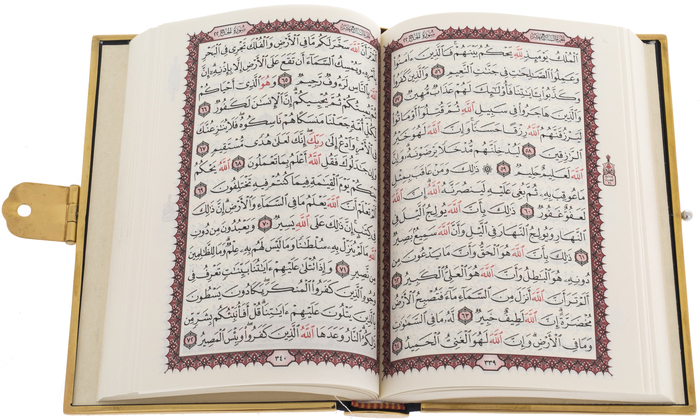 سُورَةُ الحَجِّ ٢٢
الْمُلْكُ يَوْمَئِذٍ لِّلَّهِ يَحْكُمُ بَيْنَهُمْ فَالَّذِينَ ءَامَنُوا
وَعَمِلُوا الصَّالِحَاتِ فِي جَنَّاتِ النَّعِيمِ ٥٦ وَالَّذِينَ كَفَرُوا
وَكَذَّبُوا بِآيَاتِنَا فَأُولَٰئِكَ لَهُمْ عَذَابٌ مُّهِينٌ ٥٧
وَالَّذِينَ هَاجَرُوا فِي سَبِيلِ اللَّهِ ثُمَّ قُتِلُوا أَوْ مَاتُوا
لَيَرْزُقَنَّهُمُ اللَّهُ رِزْقًا حَسَنًا وَإِنَّ اللَّهَ لَهُوَ خَيْرُ
الرَّازِقِينَ ٥٨ لَيُدْخِلَنَّهُم مُّدْخَلًا يَرْضَوْنَهُ وَإِنَّ
اللَّهَ لَعَلِيمٌ حَلِيمٌ ٥٩ ۞ ذَٰلِكَ وَمَنْ عَاقَبَ بِمِثْلِ
مَا عُوقِبَ بِهِ ثُمَّ بُغِيَ عَلَيْهِ لَيَنصُرَنَّهُ اللَّهُ إِنَّ اللَّهَ
لَعَفُوٌّ غَفُورٌ ٦٠ ذَٰلِكَ بِأَنَّ اللَّهَ يُولِجُ اللَّيْلَ فِي
النَّهَارِ وَيُولِجُ النَّهَارَ فِي اللَّيْلِ وَأَنَّ اللَّهَ سَمِيعٌ بَصِيرٌ
٦١ ذَٰلِكَ بِأَنَّ اللَّهَ هُوَ الْحَقُّ وَأَنَّ مَا يَدْعُونَ مِن
دُونِهِ هُوَ الْبَاطِلُ وَأَنَّ اللَّهَ هُوَ الْعَلِيُّ الْكَبِيرُ ٦٢
أَلَمْ تَرَ أَنَّ اللَّهَ أَنزَلَ مِنَ السَّمَاءِ مَاءً فَتُصْبِحُ الْأَرْضُ
مُخْضَرَّةً إِنَّ اللَّهَ لَطِيفٌ خَبِيرٌ ٦٣ لَّهُ مَا فِي السَّمَاوَاتِ
وَمَا فِي الْأَرْضِ وَإِنَّ اللَّهَ لَهُوَ الْغَنِيُّ الْحَمِيدُ ٦٤
٣٣٩
سُورَةُ الحَجِّ ٢٢
أَلَمْ تَرَ أَنَّ اللَّهَ سَخَّرَ لَكُم مَّا فِي الْأَرْضِ وَالْفُلْكَ تَجْرِي فِي الْبَحْرِ
بِأَمْرِهِ وَيُمْسِكُ السَّمَاءَ أَن تَقَعَ عَلَى الْأَرْضِ إِلَّا بِإِذْنِهِ إِنَّ
اللَّهَ بِالنَّاسِ لَرَءُوفٌ رَّحِيمٌ ٦٥ وَهُوَ الَّذِي أَحْيَاكُمْ
ثُمَّ يُمِيتُكُمْ ثُمَّ يُحْيِيكُمْ إِنَّ الْإِنسَانَ لَكَفُورٌ ٦٦
لِّكُلِّ أُمَّةٍ جَعَلْنَا مَنسَكًا هُمْ نَاسِكُوهُ فَلَا يُنَازِعُنَّكَ
فِي الْأَمْرِ وَادْعُ إِلَىٰ رَبِّكَ إِنَّكَ لَعَلَىٰ هُدًى مُّسْتَقِيمٍ ٦٧
وَإِن جَادَلُوكَ فَقُلِ اللَّهُ أَعْلَمُ بِمَا تَعْمَلُونَ ٦٨ اللَّهُ يَحْكُمُ
بَيْنَكُمْ يَوْمَ الْقِيَامَةِ فِيمَا كُنتُمْ فِيهِ تَخْتَلِفُونَ ٦٩
أَلَمْ تَعْلَمْ أَنَّ اللَّهَ يَعْلَمُ مَا فِي السَّمَاءِ وَالْأَرْضِ إِنَّ ذَٰلِكَ
فِي كِتَابٍ إِنَّ ذَٰلِكَ عَلَى اللَّهِ يَسِيرٌ ٧٠ وَيَعْبُدُونَ مِن دُونِ
اللَّهِ مَا لَمْ يُنَزِّلْ بِهِ سُلْطَانًا وَمَا لَيْسَ لَهُم بِهِ عِلْمٌ وَمَا لِلظَّالِمِينَ
مِن نَّصِيرٍ ٧١ وَإِذَا تُتْلَىٰ عَلَيْهِمْ آيَاتُنَا بَيِّنَاتٍ تَعْرِفُ فِي
وُجُوهِ الَّذِينَ كَفَرُوا الْمُنكَرَ يَكَادُونَ يَسْطُونَ
بِالَّذِينَ يَتْلُونَ عَلَيْهِمْ آيَاتِنَا قُلْ أَفَأُنَبِّئُكُم بِشَرٍّ مِّن
ذَٰلِكُمُ النَّارُ وَعَدَهَا اللَّهُ الَّذِينَ كَفَرُوا وَبِئْسَ الْمَصِيرُ ٧٢
٣٤٠